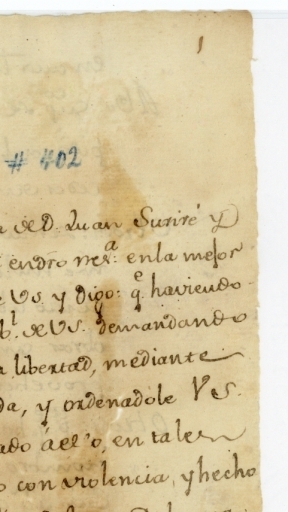 1
# 402
a de D. Juan Suriré y
endro nesa: en la mejor
e Vs. y digo: qe haviendo
bl. de VS. demandando
a libertad, mediante
da, y ordenadole Vs.
ado á ello, en tales
o con violencia, y hecho